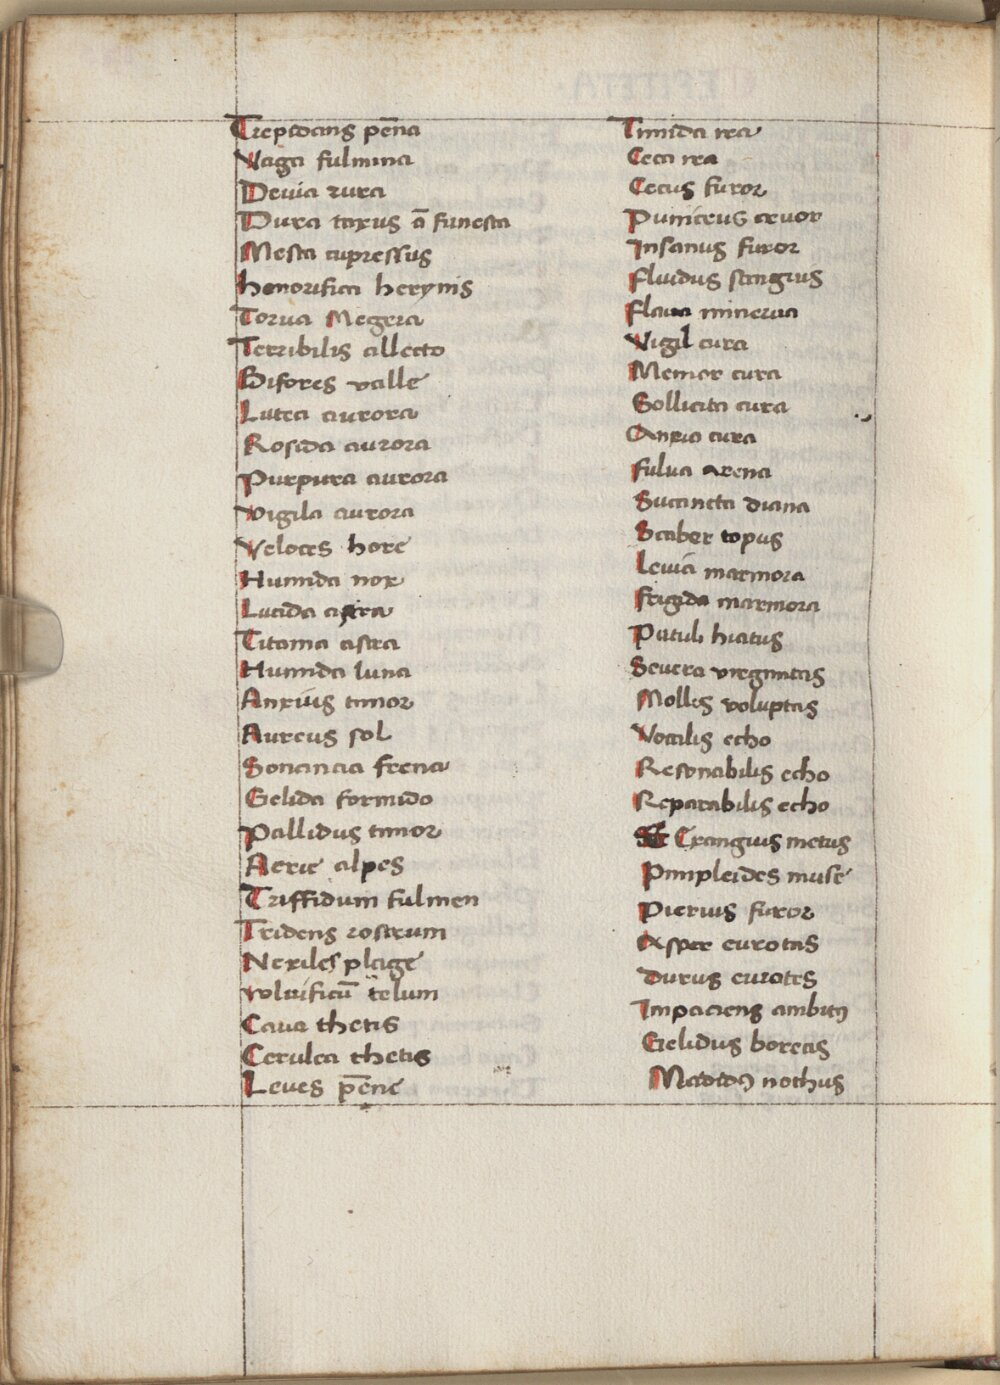 Trepidans pēna
Vaga fulmina
Devia rura
Dura taxus ā funesta
Mesta cupressus
honorifica herynis
Torua Megera
Terribilis allecto
Bifores valle
Lutea aurora
Rosida aurora
Purpura aurora
Vigila aurora
Veloces hore
Humida nox
Lucida astra
Titania astra
Humida luna
Anxius timor
Aureus sol
Sonancia frena
Gelida formido
Pallidus timor
Aerie alpes
Triffidum fulmen
Tridens rostrum
Nexiles plage
volnificū telum
Caua thetis
Cerulea thetis
Leues pēne
Timida rea
Ceca rea
Cecus furor
Puniceus cruor
Insanus furor
fluidus sangius
flaua minerua
Vigil cura
Memor cura
Sollicita cura
Anxia cura
fulua arena
Succincta diana
Scaber topus
Leuia marmora
frigida marmora
Patuli hiatus
Seuera virginitas
Molles voluptas
Vocalis echo
Resonabilis echo
Reparabilis echo
Exangius metus
Pimpleides muse
Pierius furor
Asper eurotas
Durus eurotes
Impaciens ambitꝯ
Gelidus boreas
Madidꝯ nothus